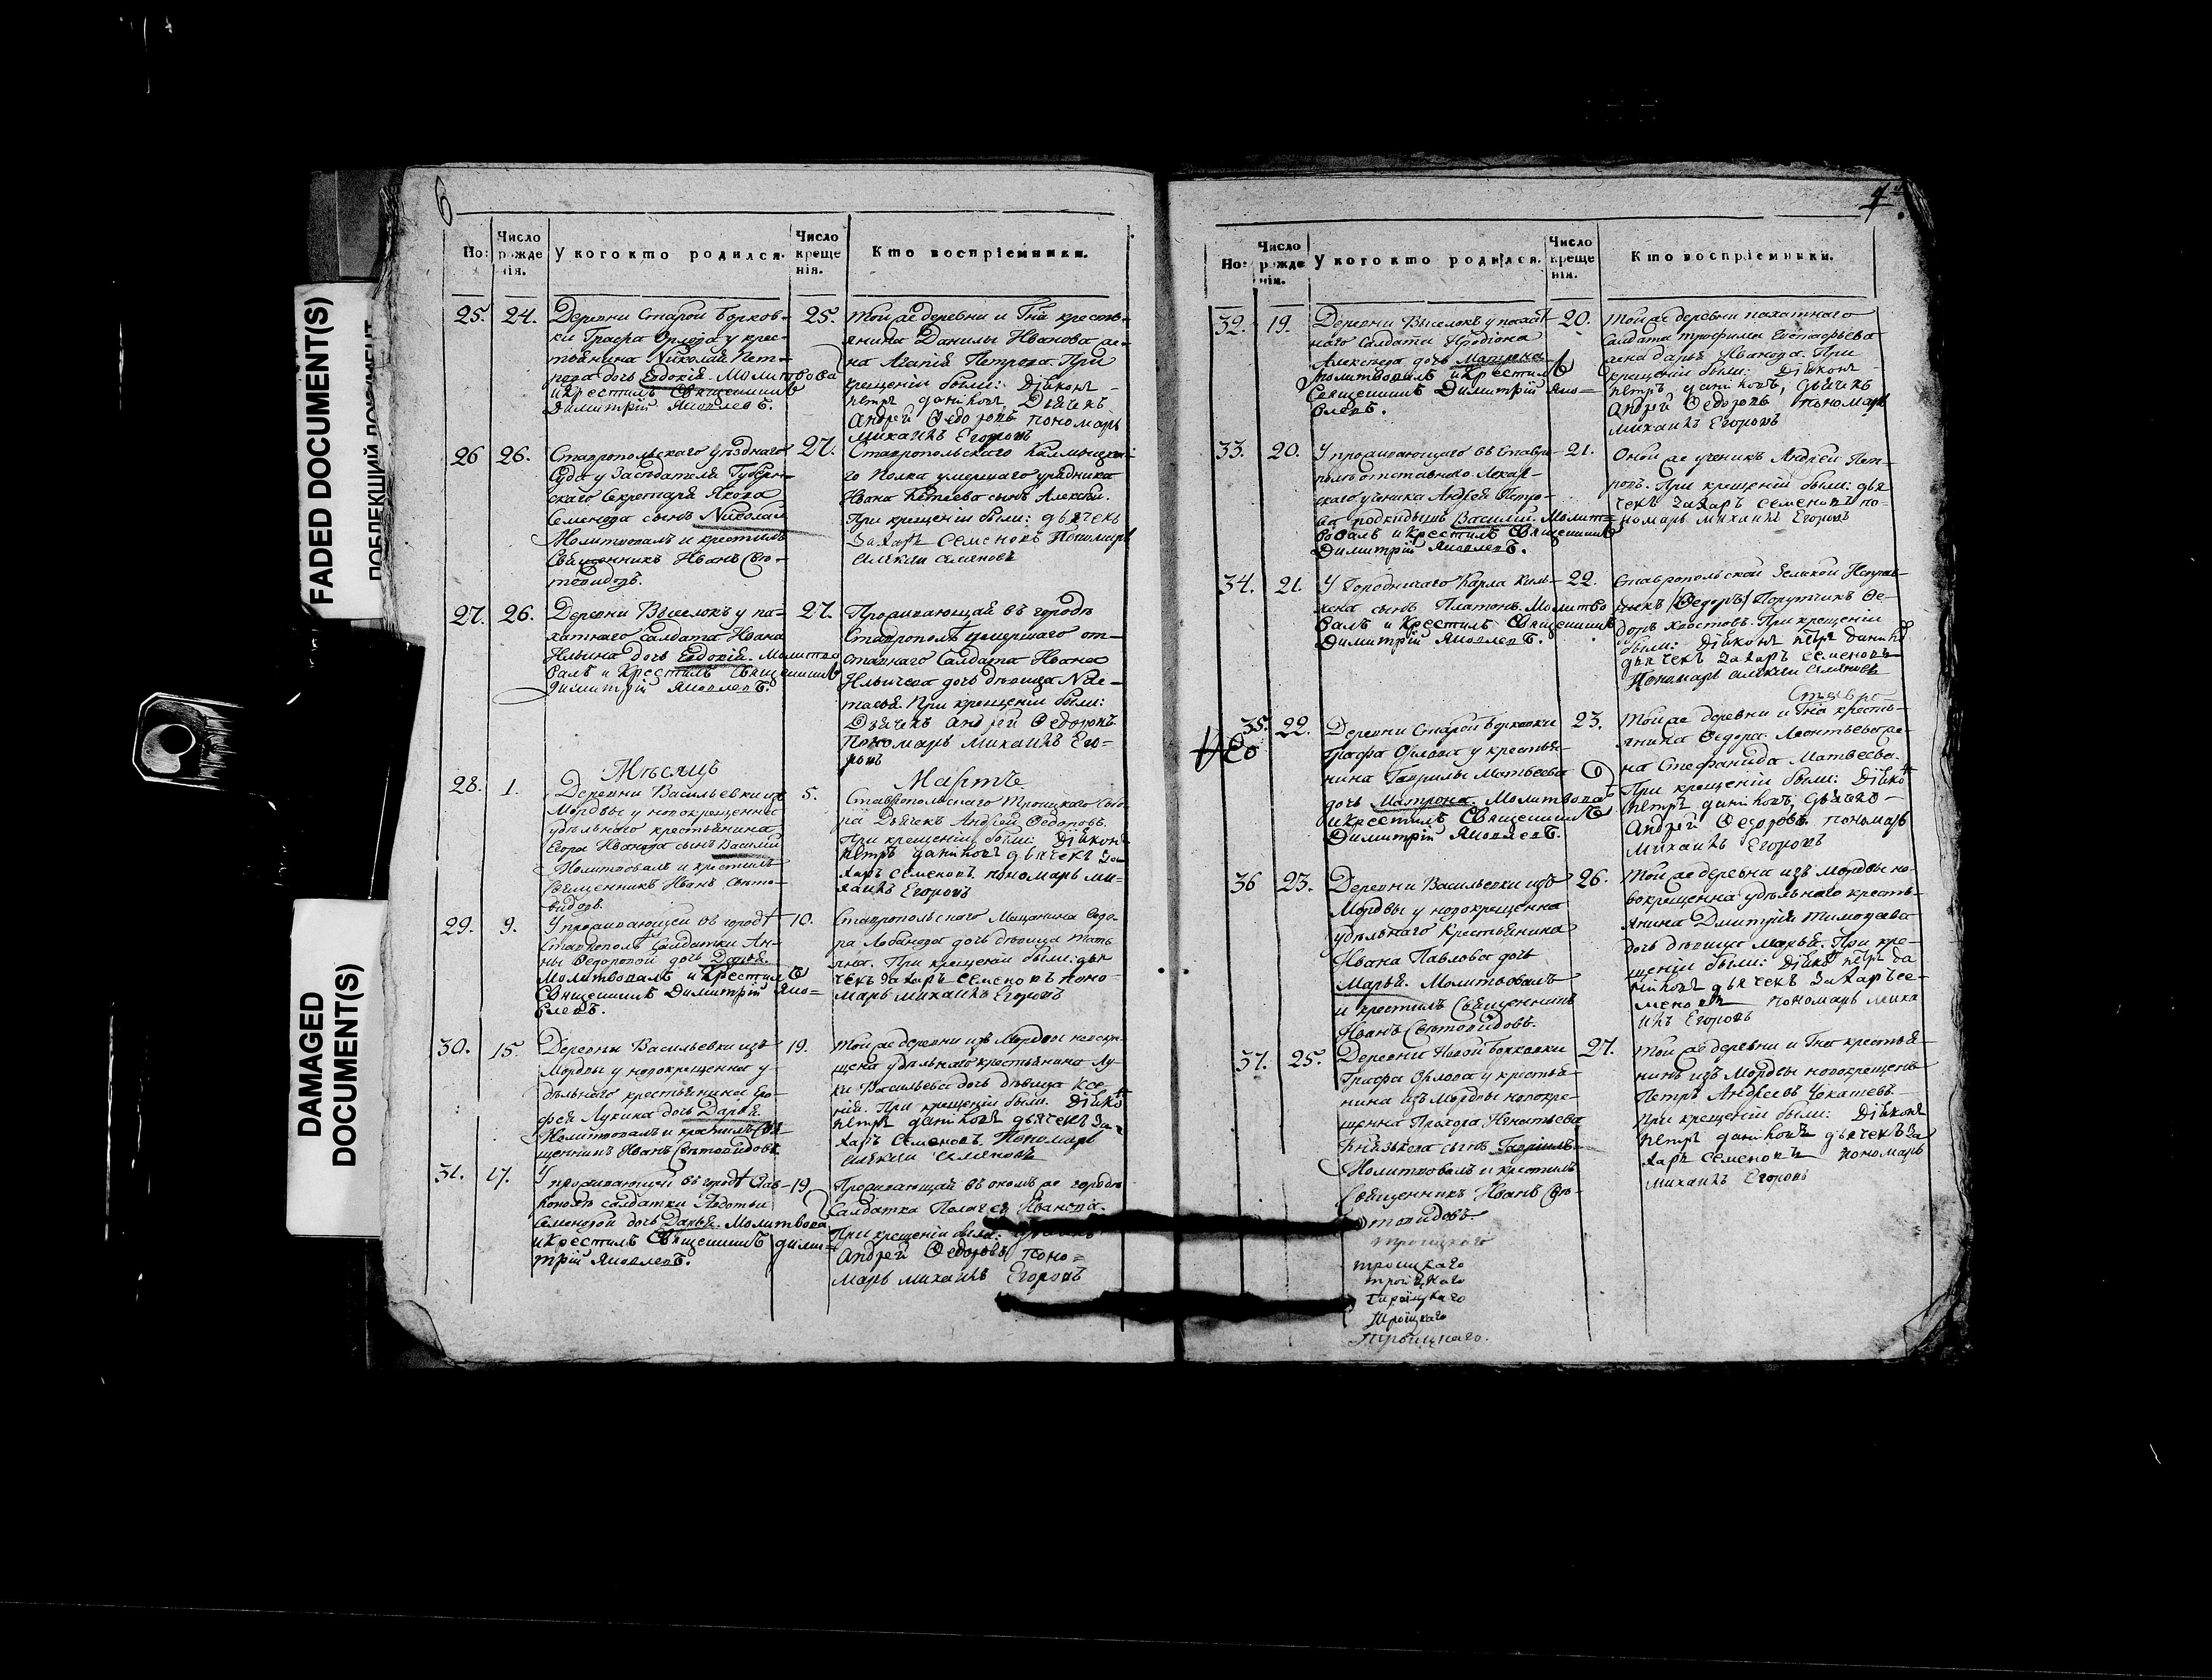 FADED DOCUMENT(S)
DAMAGED
DOCUMENT(S)
6
Но:
Число
рожде
нія.
У кого кто родился.
Число
креще
нія.
Кто воспріемники.
25.
24.
Деревни Старой Борков-
ки Графа Орлова у крес-
тьянина Николая Пет-
рова дочь Евдокія. Молитвова
и крестилъ Священникъ
Димитрій Яковлевъ.
25.
Той же деревни и Гна кресть-
янина Данилы Иванова же-
на Агапія Петрова. При
крещеніи были: Діяконъ
Петръ Даніловъ, Дьячекъ
Андрей Федоровъ пономарь
Михаилъ Егоровъ
26
26.
Ставропольскаго уѣзднаго
Суда у Засѣдателя Губерн-
скаго Секретаря Якова
Семенова сынъ Николай
Молитвовалъ и крестилъ
Священникъ Иванъ Свѣ-
товидовъ.
27.
Ставропольскаго Калмыцка-
го Полка умершаго урядника
Ивана сынъ Алексѣй.
При крещеніи были: дьячекъ
Захаръ Семеновъ Пономарь
Алекѣи Семеновъ
27.
26.
Деревни Выселокъ у па-
хатнаго Салдата Ивана
Ильина дочь Евдокія. Молитво
валъ и Крестилъ Священникъ
Димитрій Яковлевъ.
27.
Проживающая въ городѣ
Ставрополѣ умершаго от-
ставнаго Салдата Ивана
Ильичева дочь дѣвица Нас-
тасья. При крещеніи были:
Дьячекъ Андрей Федоровъ
Пономарь Михаилъ Его-
ровъ
Мѣсяцъ
Мартъ
28.
1.
Деревни Васильевки изъ
Мордвы у новокрещенна
удѣльнаго крестьянина
Егора Иванова сынъ Василій
Молитвовалъ и крестилъ
Священникъ Иванъ Свѣто-
видовъ.
5.
Ставропольскаго Троицкаго Собо-
ра Дьячекъ Андрей Федоровъ.
При крещеніи были: Діяконъ
Петръ Даніловъ дьячекъ За
харъ Семеновъ пономарь Ми-
хаилъ Егоровъ
29.
9.
У проживающей въ городѣ
Ставрополѣ Салдатки Ан-
ны Федоровой дочь Дарья.
Молитвовалъ и Крестилъ
Священникъ Димитрій Яко-
влевъ.
10.
Ставропольскаго Мещанина Федо-
ра Лобанова дочь дѣвица Тать
яна. При крещеніи были: дья
чекъ Захаръ Семеновъ Поно-
марь Михаилъ Егоровъ
30.
15.
Деревни Васильевки изъ
Мордвы у новокрещенна у-
дѣльнаго крестьянина Еро-
фея Лукина дочь Дарья.
Молитвовалъ и крестилъ Свя-
щенникъ Иванъ Свѣтовидовъ
19.
Той же деревни изъ Мордвы новокре-
щена удѣльнаго крестьянина Лу-
ки Васильева дочь дѣвица Ксе
нія. При крещеніи были: Діяко
Петръ Даніловъ дьячекъ За-
харъ Семеновъ, Пономарь
Алекѣи Семеновъ
31.
17.
У проживающей въ городѣ Став-
рополѣ салдатки Авдотьи
Семеновой дочь Дарья. Молитвова
и Крестилъ Священникъ Дими-
трій Яковлевъ.
19.
Проживающая въ ономъ же городѣ
Салдатка Пелагея Иванова.
При крещеніи были:
Андрей Федоровъ Поно-
марь Михаилъ Егоровъ
Но:
Число
рожде
нія.
У кого кто родился.
Число
креще
нія.
Кто воспріемники.
32.
19.
Деревни Выселокъ у пахат
наго Салдата Иродіона
Алексѣева дочь Матрона
молитвовалъ и Крестилъ
Священникъ Димитрій Яко-
влевъ.
20.
Той же деревни пахатнаго
Салдата Трофима Евстафьева
жена Дарья Иванова. При
крещеніи были: Діяконъ
Петръ Даніловъ, дьячекъ
Андрей Федоровъ пономарь
Михаилъ Егоровъ
33.
20.
У проживающаго въ Ставро-
полѣ отставнаго Лекар-
скаго ученика Андрея Петро-
ва подкидышъ Василій. Молит-
вовалъ и Крестилъ Священникъ
Димитрій Яковлевъ.
21.
Оной же ученикъ Андрей Пет-
ровъ. При крещеніи были: дья
чекъ Захаръ Семеновъ по-
номарь Михаилъ Егоровъ
34.
21.
У Городничаго Карла
сынъ Платонъ. Молитво
валъ и Крестилъ Священникъ
Димитрій Яковлевъ.
22.
Ставропольской Земской Исправ-
никъ (Федоръ) Порутчикъ Фе-
доръ Хвостовъ. При крещеніи
были: Діяконъ Петръ Данил
дьячекъ Захаръ Семеновъ
Пономарь Алекѣи Семеновъ
Ставро-
35.
22.
Деревни Старой Борковки
Графа Орлова у крестья-
нина Гаврилы Матвеева
дочь Матрона. Молитвова
и Крестилъ Священникъ
Димитрій Яковлевъ.
23.
Той же деревни и Гна кресть-
янина Федора Леонтьева же-
на Стефанида Матвеева.
При крещеніи были: Діяко
Петръ Даніловъ, дьячекъ
Андрей Федоровъ. пономарь
Михаилъ Егоровъ
36
23.
Деревни Васильевки изъ
Мордвы у новокрещенна
удѣльнаго Крестьянина
Ивана Павлова дочь
Марья. Молитвовалъ
и крестилъ Священникъ
Иванъ Свѣтовидовъ.
26.
Той же деревни изъ Мордвы но-
вокрещенна удѣльнаго кресть-
янина Дмитрія Тимофеева
дочь дѣвица Марья. При кре-
щеніи были: Діяко Петръ Да
ніловъ дьячекъ Захаръ Се-
меновъ пономарь Миха
илъ Егоровъ
37.
25.
Деревни Новой Борковки
Графа Орлова у крестья-
нина изъ Мордвы новокре-
щенна Прохора Игнатьева
Князькова сынъ Гавріилъ.
Молитвовалъ и крестилъ
Священникъ Иванъ Свѣ-
товидовъ.
27.
Той же деревни и Гна крестья-
нинъ изъ Мордвы новокрещенъ
Петръ Андреевъ
При крещеніи были: Діяконъ
Петръ Даніловъ дьячекъ За
харъ Семеновъ пономарь
Михаилъ Егоровъ
троицкаго
троицкаго
троицкаго
Троицкаго
Троицкаго
Троицкаго.